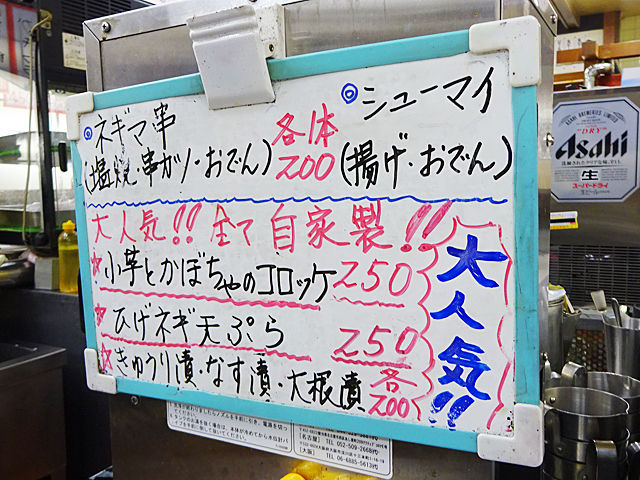 ◎ネギマ串
(塩焼・串カツ・おでん)
各体
200
◎シューマイ
(揚げ・おでん)
大人気!! 全て自家製!!
小芋とかぼちゃのコロッケ 250
ひげネギ天ぷら 250
きゅうり漬・なす漬・大根漬 各200
大人気!!
ASAHI BREWERIES LIMITED
"DRY"
Asahi
生
スーパードライ
(名古屋)
TEL 052-509-2668
(大阪)
TEL 06-6885-5613